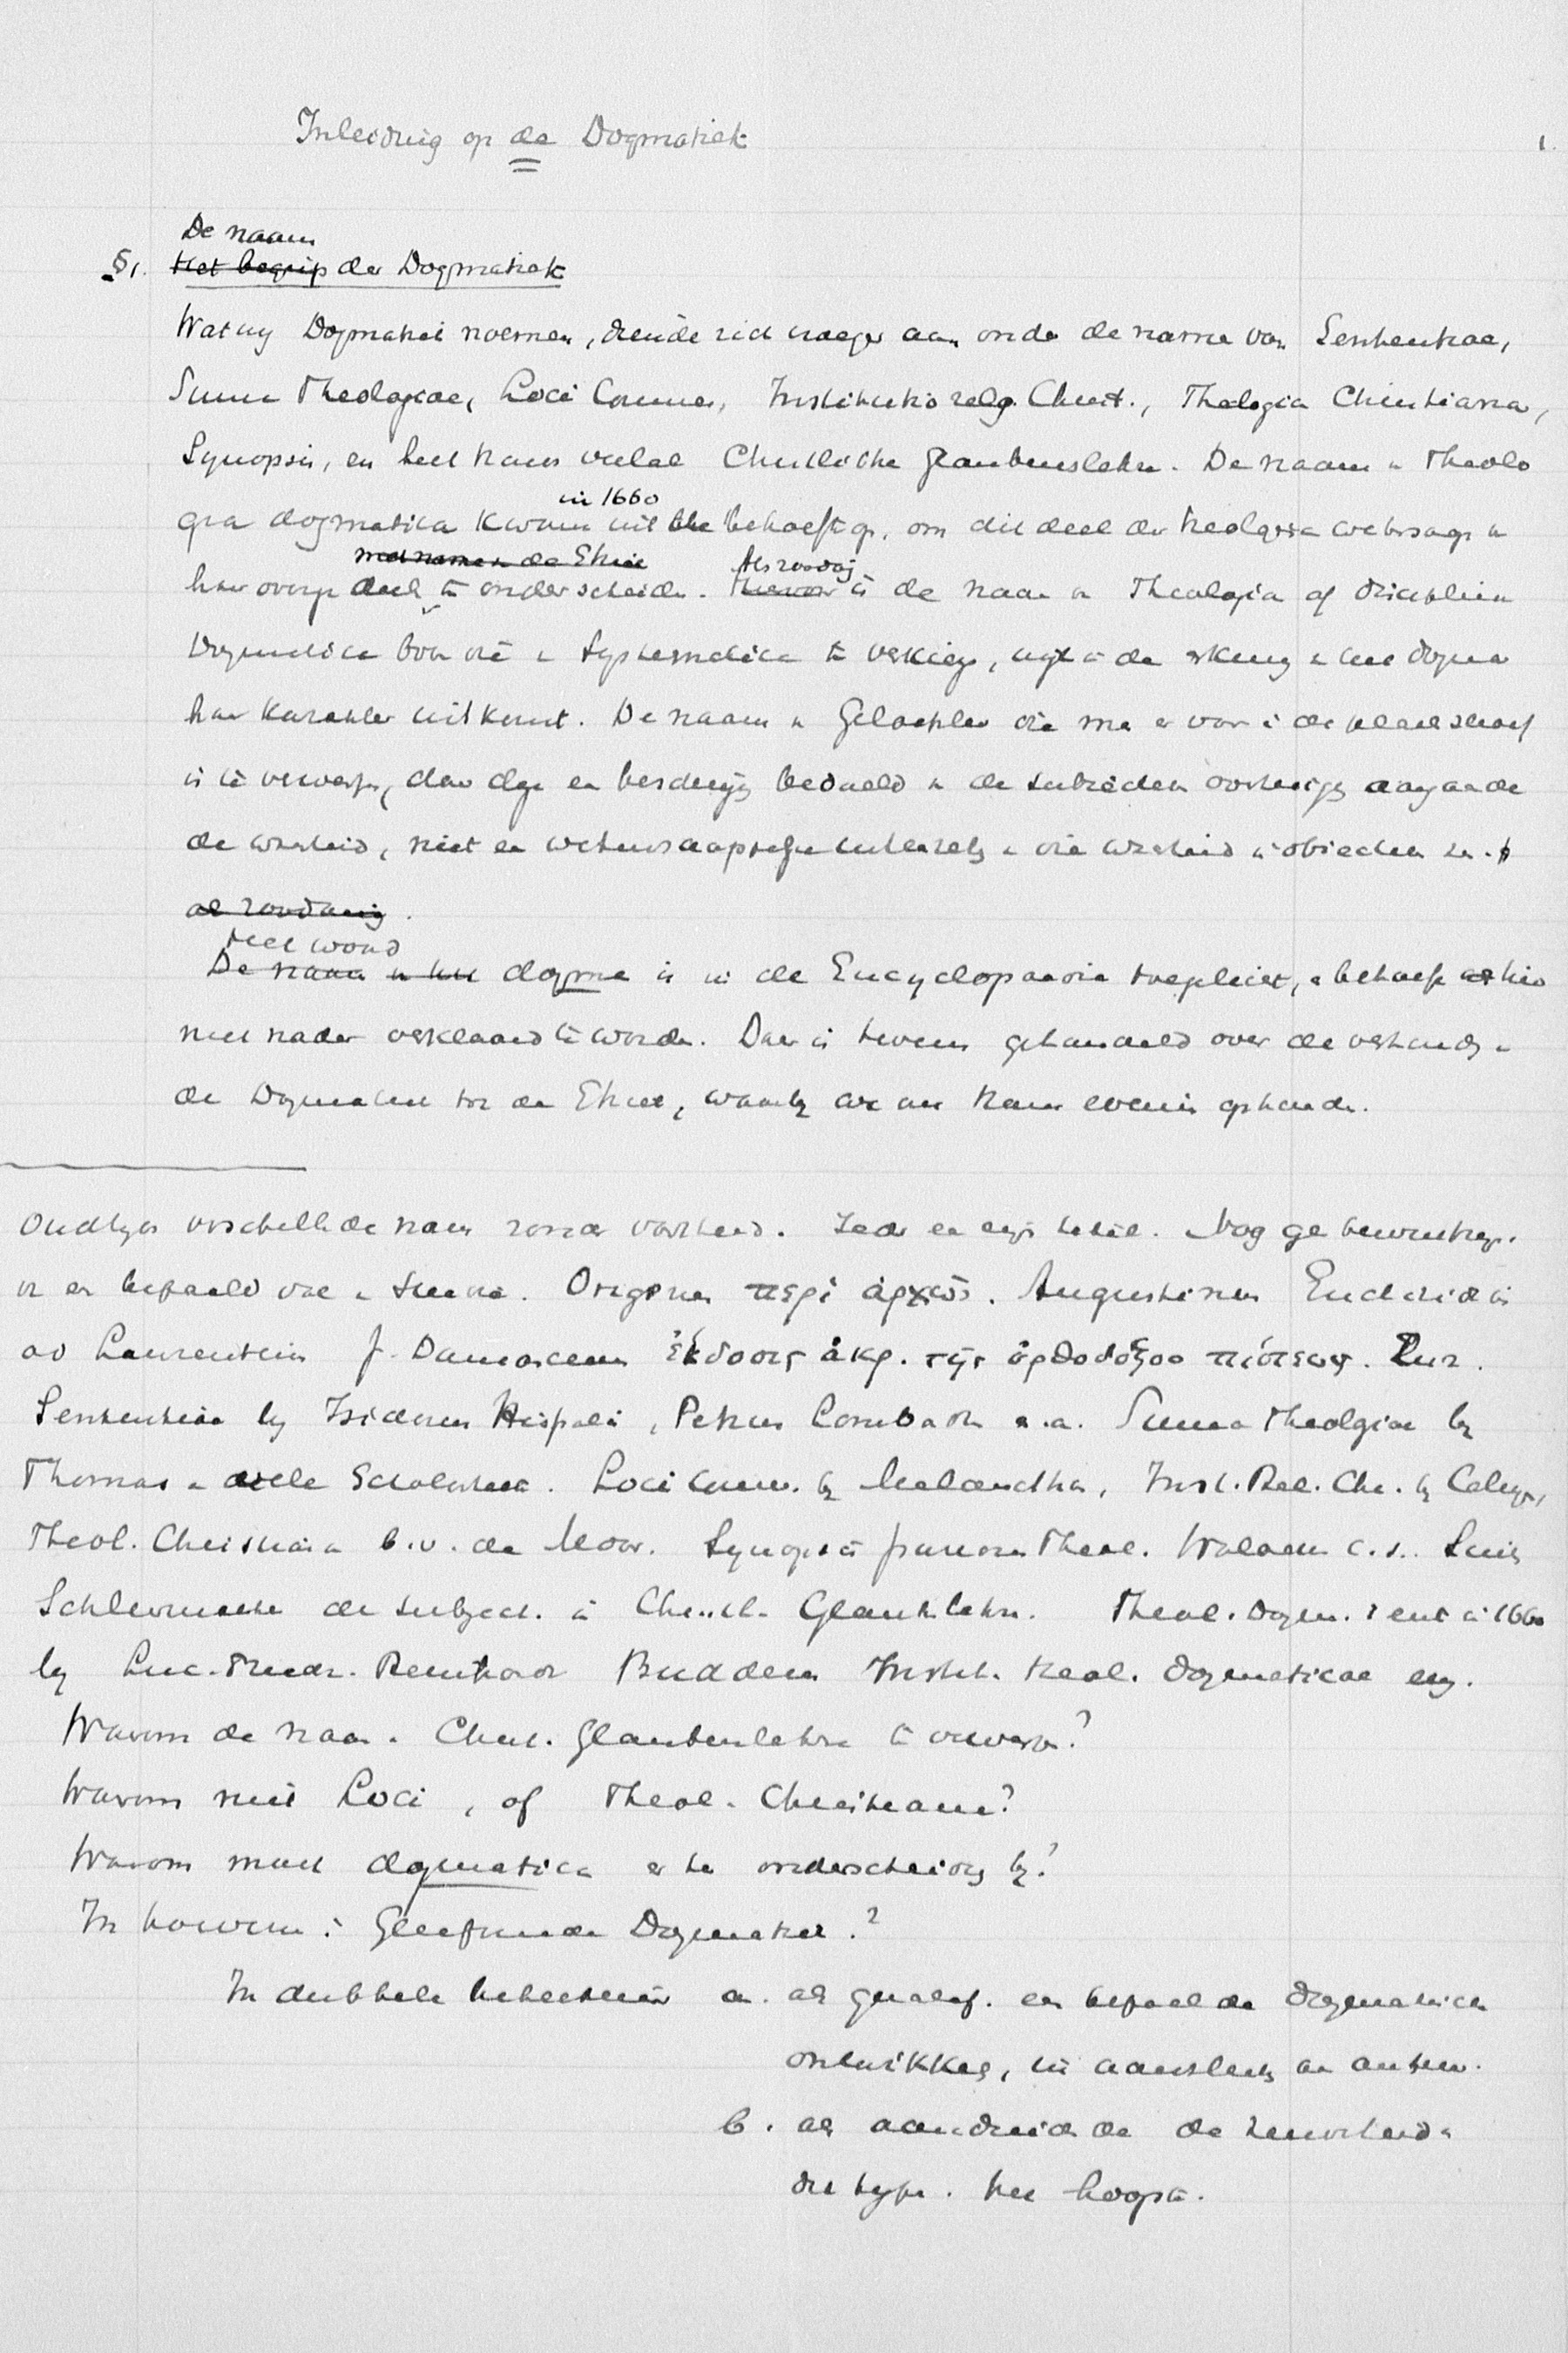 Inleiding op de Dogmatiek
1.
De naam
§1. Het begrip der Dogmatiek
Wat wy Dogmatiek noemen, diende zich vroeger aan onder de name van Sententiae,
Summa Theologiae, Loci Communes, Institutio relig. Christ., Theologia Christiana,
Synopsis, en heet thans veelal Christliche Glaubenslehre. De naam v Theolo
in 1660
gia dogmatica kwam uit de behoefte op, om dit deel der theologische wetensch. v
met name v de Ethiek Als zoodanig
haar overige deel te onderscheiden. Hiervoor is de naam v Theologia of disciplina
Dogmatica boven die v Systematica te verkiezen, wyl in de erkenning v het dogma
haar karakter uitkomt. De naam v Geloofsleer die men er voor in de plaats schoof
is te verwerpen, daar deze een beschrijving bedoeld v de subjectieve overtuiging aangaande
de waarheid, niet een wetenschappelijke uiteenzetting v die waarheid in objectieven zin.
als zoodanig.
Het woord
De naam v het dogma is in de Encyclopaedie toegelicht, en behoeft hier
niet nader verklaard te worden. Daar is tevens gehandeld over de verhouding v
de Dogmatiek tot de Ethiek, waarby we ons thans evenmin ophouden.
Oudtyds verschillende namen zonder vastheid. Ieder een eigen titel. Nog geen bewustheid
v een bepaald vak v studie. Origenes περὶ ἀρχῶν. Augustinus Enchiridion
ad Laurentium J. Damascenus ἔκδοσις ἀκρ. τῆς ὀρθοδόξου πίστεως.
Sententiae by Isidorus Hispali, Petrus Lombardus e.a. Summa Theologiae by
Thomas v vele Scholastici. Loci comm. by Melanchthon, Inst. Rel. Chr. by Calvyn,
Theol. Christiana b.v. de Moor. Synopsis purioris Theol. Walaeus c.s. Sinds
Schleiermacher de subject. in Christl. Glaubenslehre. Theol. Dogm. eerst in 1660
by Luc. Friedr. Reinhard Buddeus Instit. theol. dogmaticae enz.
Waarom de naam v Christ. Glaubenslehre te verwerpen?
Waarom niet Loci, of Theol. Christiana?
Waarom moet dogmatica er ter onderscheiding by?
In hoeverre is Gereformeerde Dogmatiek?
In dubbele beteekenis a. als gequalif. een bepaalde dogmatische
ontwikkeling, in aansluiting aan
b. als aanduidende de zuiverheid v
die type. het hoogste.